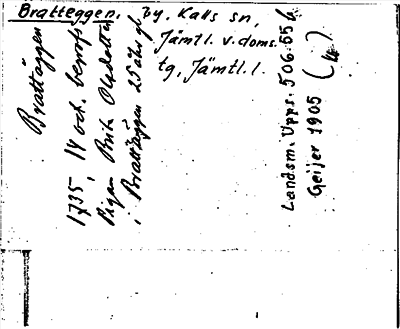 Bratteggen. by. Kalls sn,
Jämtl. v. doms.
tg, Jämtl. l.
Brattäggen
1735, 14 oct.
Pigan Brita Olsdotter
i Brattäggen 25 åhr gl.
Landsm. Upps. 506:55 b.
Geijer 1905